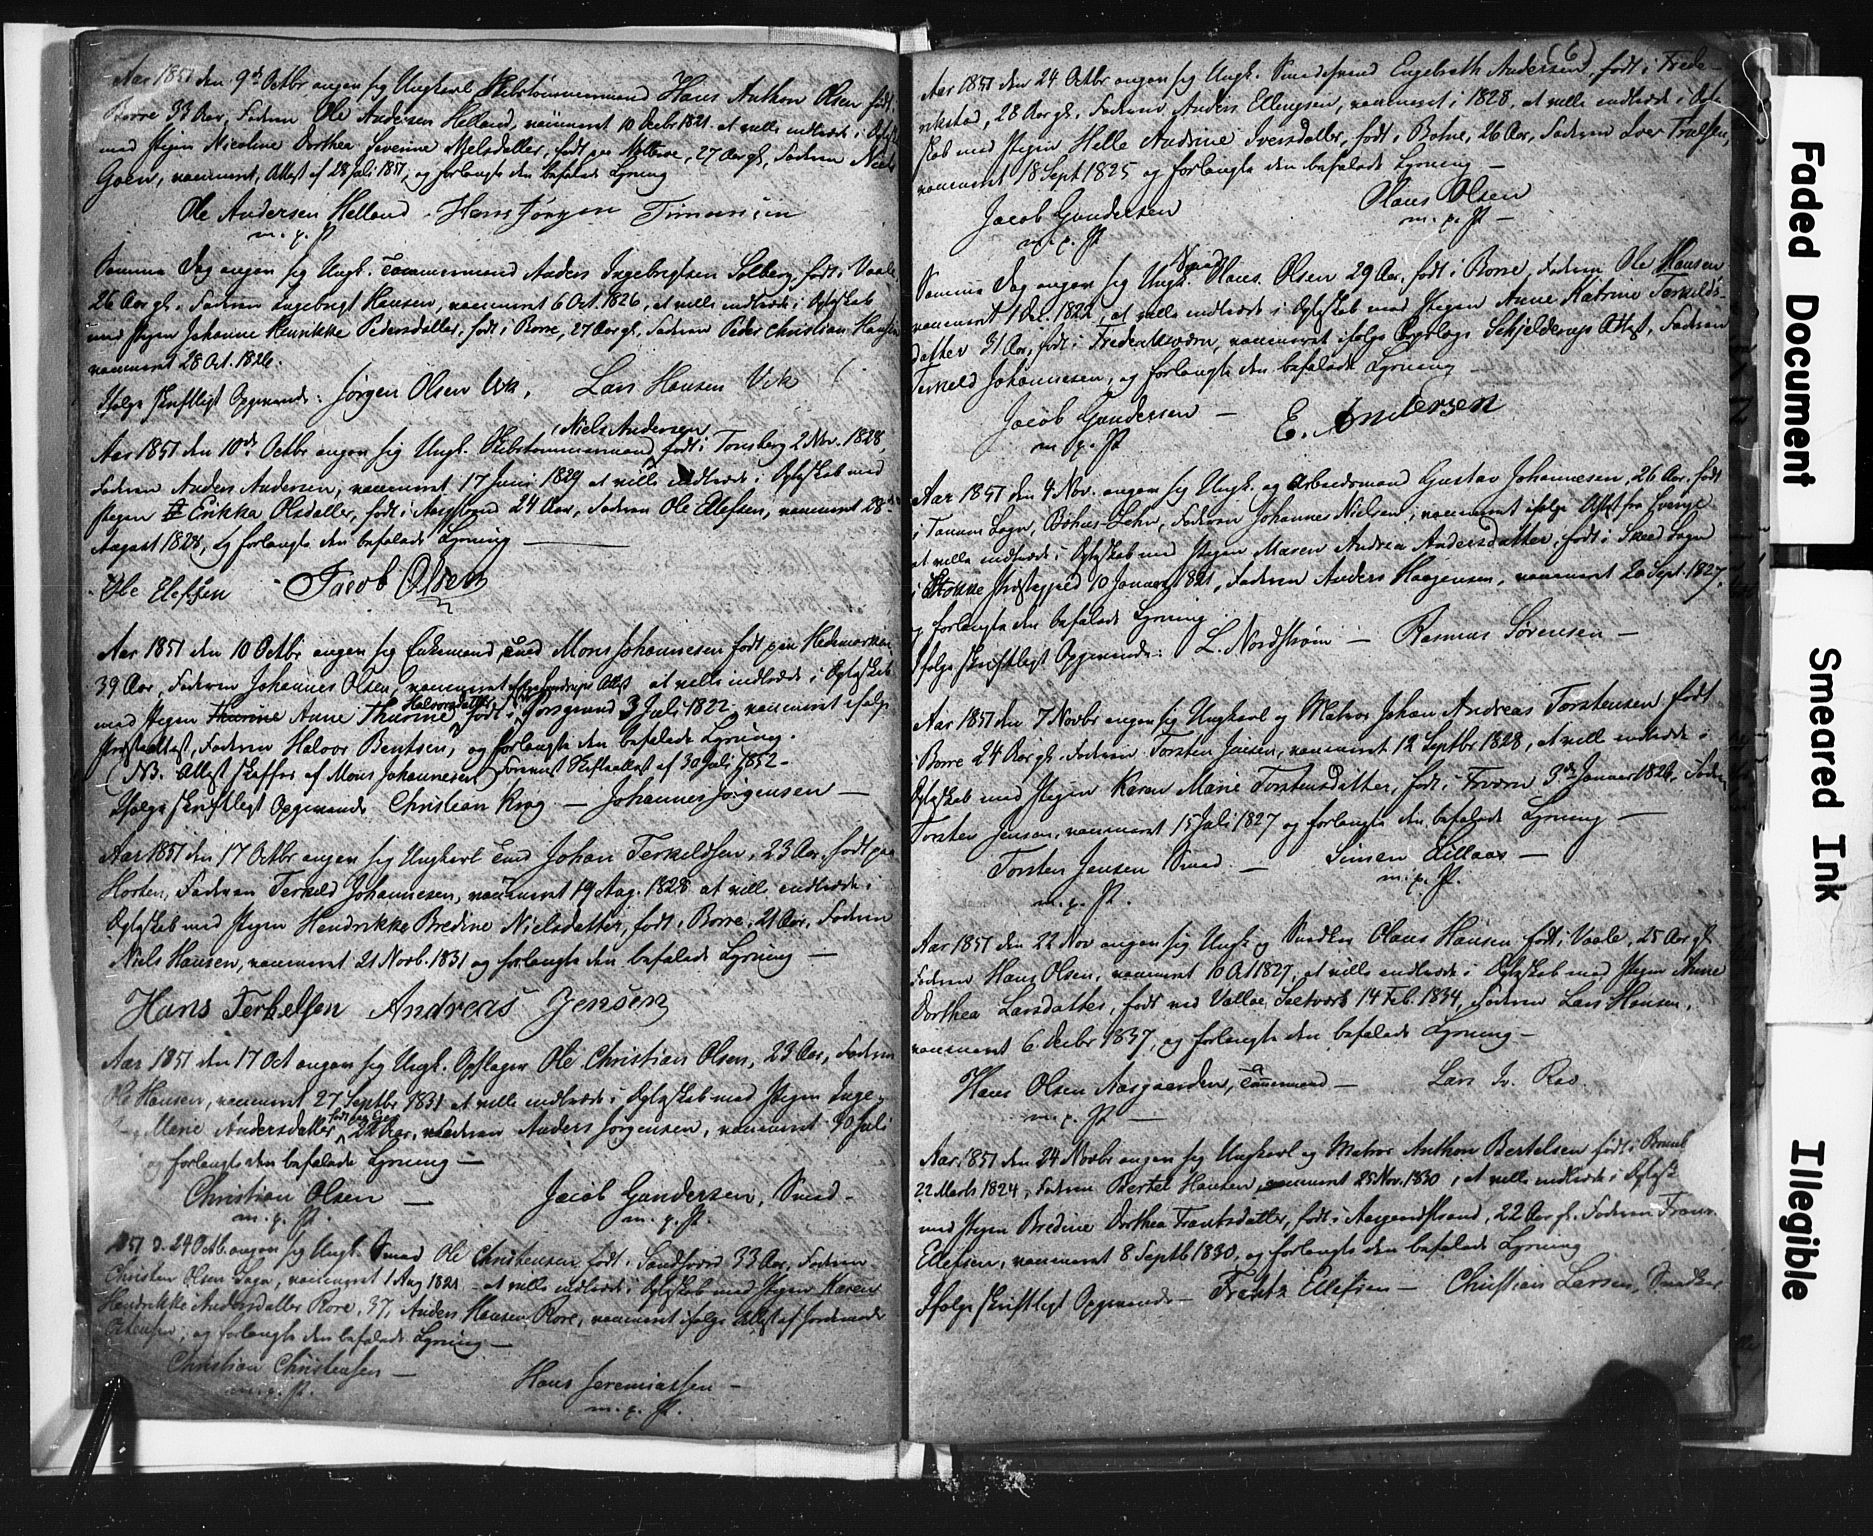 Aar 1851 den 9de Octbr angav sig Ungkarl Skibstømmermand Hans Anthon Olsen født i
Borre 33 Aar, Faderen Ole Andersen Helland, vaccineret 10 Decbr 1821 at ville indtræde i Ægte
med Pigen Nicoline Dorthea Severine Nielsdatter, født paa Nøtterøe, 27 Aar gl., Faderen Niels
Goen, vaccineret, Attest af 28 Juli 1851, og forlangte den befalede Lysning
Ole Andersen Helland - Hans Jørgen Simonsen
m. p. P.
Samme Dag angav sig Ungk. Tømmermand Anders Ingebrigtsen Solberg, født i Vaale
26 Aar gl., Faderen Ingebrigt Hansen, vaccineret 6 Oct. 1826, at ville indtræde i Ægteskab
med Pigen Johanne Henrikke Pedersdatter, født i Borre, 27 Aar gl., Faderen Peder Christian Hansen
vaccineret 28 Oct. 1826.
Ifølge skriftligt Opgivende: Jørgen Olsen Vik, Lars Hansen Vik
Niels Andersen
Aar 1851 den 10de Octbr angav sig Ungk. Skibstømmermand født i Tønsberg 2 Nov. 1828,
Faderen Anders Andersen, vaccineret 17 Juni 1829 at ville indtræde i Ægteskab med
Pigen Erikka Olsdatter, født i 24 Aar, Faderen Ole Ellefsen, vaccineret 28de
August 1828, og forlangte den befalede Lysning
Ole Elefsen Jacob Olsen
Aar 1851 den 10 Octbr angav sig Enkemand, Mons Johannesen født paa Hedemarken
39 Aar, Faderen Johannes Olsen, vaccineret ifølge Attest at ville indtræde i Ægteskab
Halvorsdatter
med Pigen Thurine Anne Thurine født i Porsgrund 3 Juli 1822 vaccineret ifølge
Præsteattest, Faderen Halvor Bentsen, og forlangte den befalede Lysning.
(NB. Attest skaffes af Mons Johannesen) Forevist Skifteattest af 30 Juli 1852 -
Ifølge skriftligt Opgivende Christian Krog - Johannes Jørgensen -
Aar 1851 den 17 Octbr angav sig Ungkarl Johan Terkeldsen, 23 Aar, født paa
Horten, Faderen Terkeld Johannesen, vaccineret 19 Aug. 1828 at ville indtræde i
Ægteskab med Pigen Hendrikke Bredine Nielsdatter, født i Borre, 21 Aar, Faderen
Niels Hansen, vaccineret 21 Novb. 1831 og forlangte den befalede Lysning -
Hans Terkelsen Andreas Jensen
Aar 1851 den 17 Oct angav sig Ungk. Opslager Ole Christian Olsen, 23 Aar, Faderen
Ole Hansen, vaccineret 27 Septbr 1831 at ville indtræde i Ægteskab med Pigen Inge-
Marie Andersdatter 22 Aar, Faderen Anders Jørgensen, vaccineret 30 Juli
og forlangte den befalede Lysning -
Christian Olsen - Jacob Gundersen, Smed -
m. p. P. m. p. P.
1851 d. 24 Octb. angav sig Ungk. Smed Ole Christensen født i Sandefjord 33 Aar, Faderen
Christen Olsen, vaccineret 1 Aug 1821 - at ville indtræde i Ægteskab med Pigen Karen
Hendrikke Andersdatter Rore, 37, Anders Hansen Rore, vaccineret ifølge Attest af Jordemoder
og forlangte den befalede Lysning -
Christian Christensen - Hans Jeremiassen -
m. p. P. m. p. P.
(6)
Aar 1851 den 24 Octbr angav sig Ungk. Smedesvend Engebreth Andersen, født i Frede-
rikstad, 28 Aar gl., Faderen Anders Ellingsen, vaccineret i 1828, at ville indtræde i Ægte
skab med Pigen Helle Andrine Iversdatter, født i Botne, 26 Aar, Faderen Iver Truelsen,
vaccineret 18 Sept 1825 og forlangte den befalede Lysning -
Jacob Gundersen Olaus Olsen
m. p. P. m. p. P. -
Smed
Samme Dag angav sig Ungk. Olaus Olsen 29 Aar, født i Borre, Faderen Ole Hansen
vaccineret 1 Dec. 1822, at ville indtræde i Ægteskab med Pigen Anne Katrine Terkelds-
datter 31 Aar, født i Frederiksværn, vaccineret ifølge Schjelderup Attest, Faderen
Terkeld Johannesen, og forlangte den befalede Lysning -
Jacob Gundersen - E. Andersen
m. p. P.
Aar 1851 den 4 Nov. angav sig Ungk. og Arbeidsmand Gustav Johannesen, 26 Aar, født
i Tanum Sogn, Bohus-Lehn, Faderen Johannes Nielsen, vaccineret ifølge Attest fra Sverige
at ville indtræde i Ægteskab med Pigen Maren Andrea Andersdatter, født i Skeed Sogn
i Stokke Præstegjeld 10 Januar 1821, Faderen Anders Haagensen, vaccineret 20 Sept. 1827,
og forlangte den befalede Lysning
Ifølge skriftligt Opgivende: L. Nordstrøm - Rasmus Sørensen -
Aar 1851 den 7 Novbr angav sig Ungkarl og Matros Johan Andreas Torstensen født
i Borre 24 Aar gl., Faderen Torsten Jensen, vaccineret 12 Septbr 1828, at ville indtræde i
Ægteskab med Pigen Karen Marie Torstensdatter, født i 3de Januar 1826, Faderen
Torsten Jensen, vaccineret 15 Juli 1827 og forlangte den befalede Lysning -
Torsten Jensen Smed - Simen Lillaas -
m. p. P. m. p. P.
Aar 1851 den 22 Nov angav sig Ungk. og Snedker Olaus Hansen, født i Vaale, 25 Aar gl.
Faderen Hans Olsen, vaccineret 10 Oct 1827, at ville indtræde i Ægteskab med Pigen Anne
Dorthea Larsdatter, født ved Valløe Saltværk 14 Feb. 1834, Faderen Lars Hansen,
vaccineret 6 Decbr 1837, og forlangte den befalede Lysning -
Hans Olsen Aasgaarden, Tømmermand - Lars
m. p. P. -
Aar 1851 den 24 Novbr angav sig Ungkarl og Matros Anthon Bertelsen født i
22 Marts 1824, Faderen Bertel Hansen, vaccineret 25 Nov. 1830, at ville indtræde i Ægtesk
med Pigen Bredine Dorthea Frantsdatter, født i Aasgaardstrand, 22 Aar gl. Faderen Frants
Ellefsen, vaccineret 8 Septb 1830, og forlangte den befalede Lysning
Ifølge skriftligt Opgivende - Frantz Ellefsen - Christian Larsen, Snedker
Faded Document
Smeared Ink
Illegible